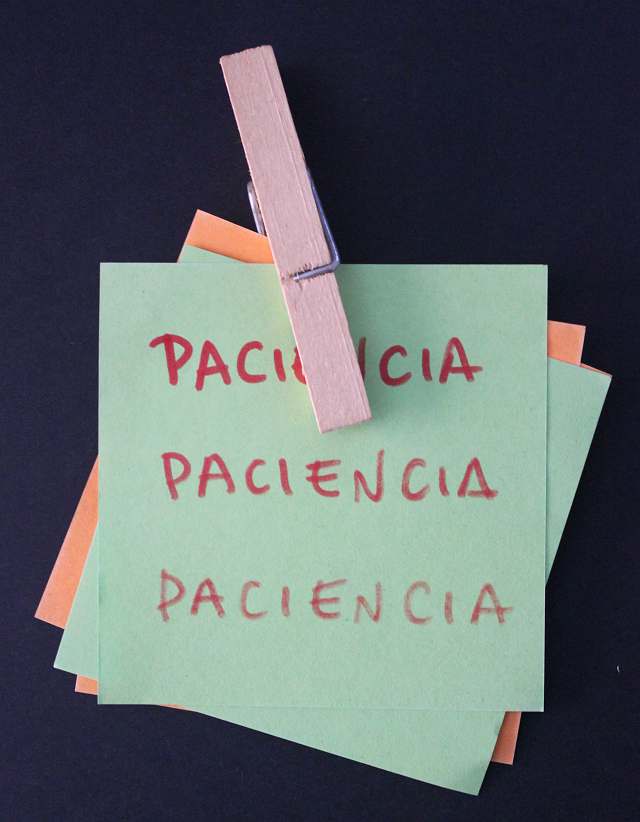 PACIENCIA
PACIENCIA
PACIENCIA